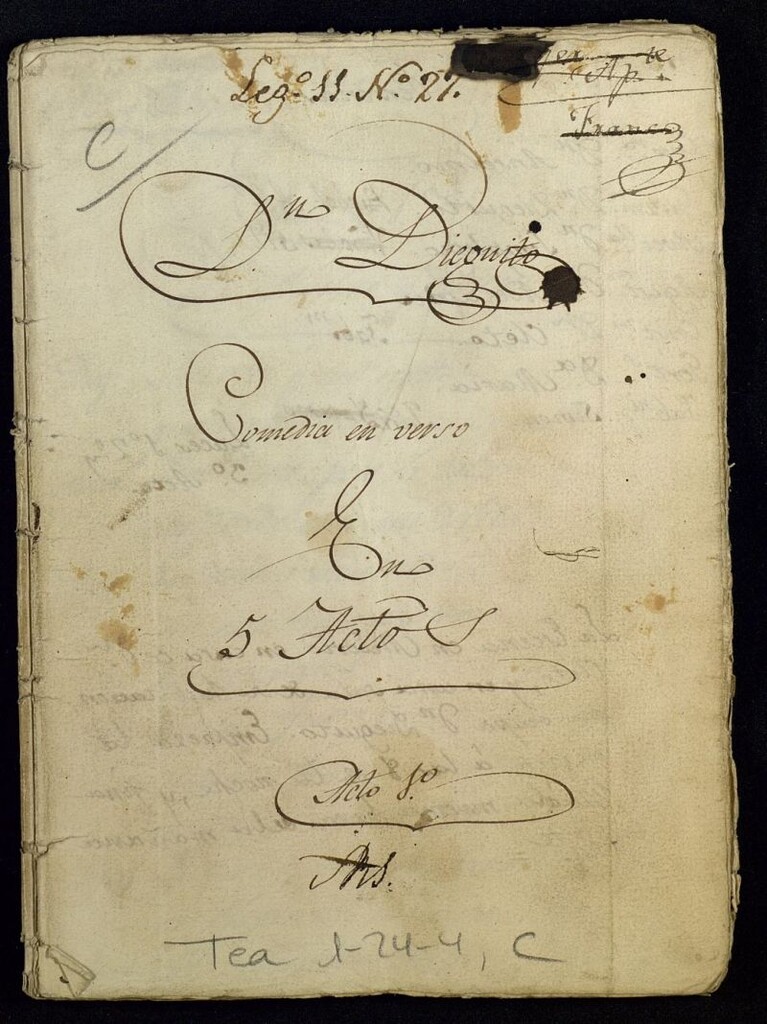 Leg.º 11. Nº 27.
Apte
Franco
C
Dn Dieguito
Comedia en verso
En
5 Actos
Acto 1.º
Tea 1-24-4, C